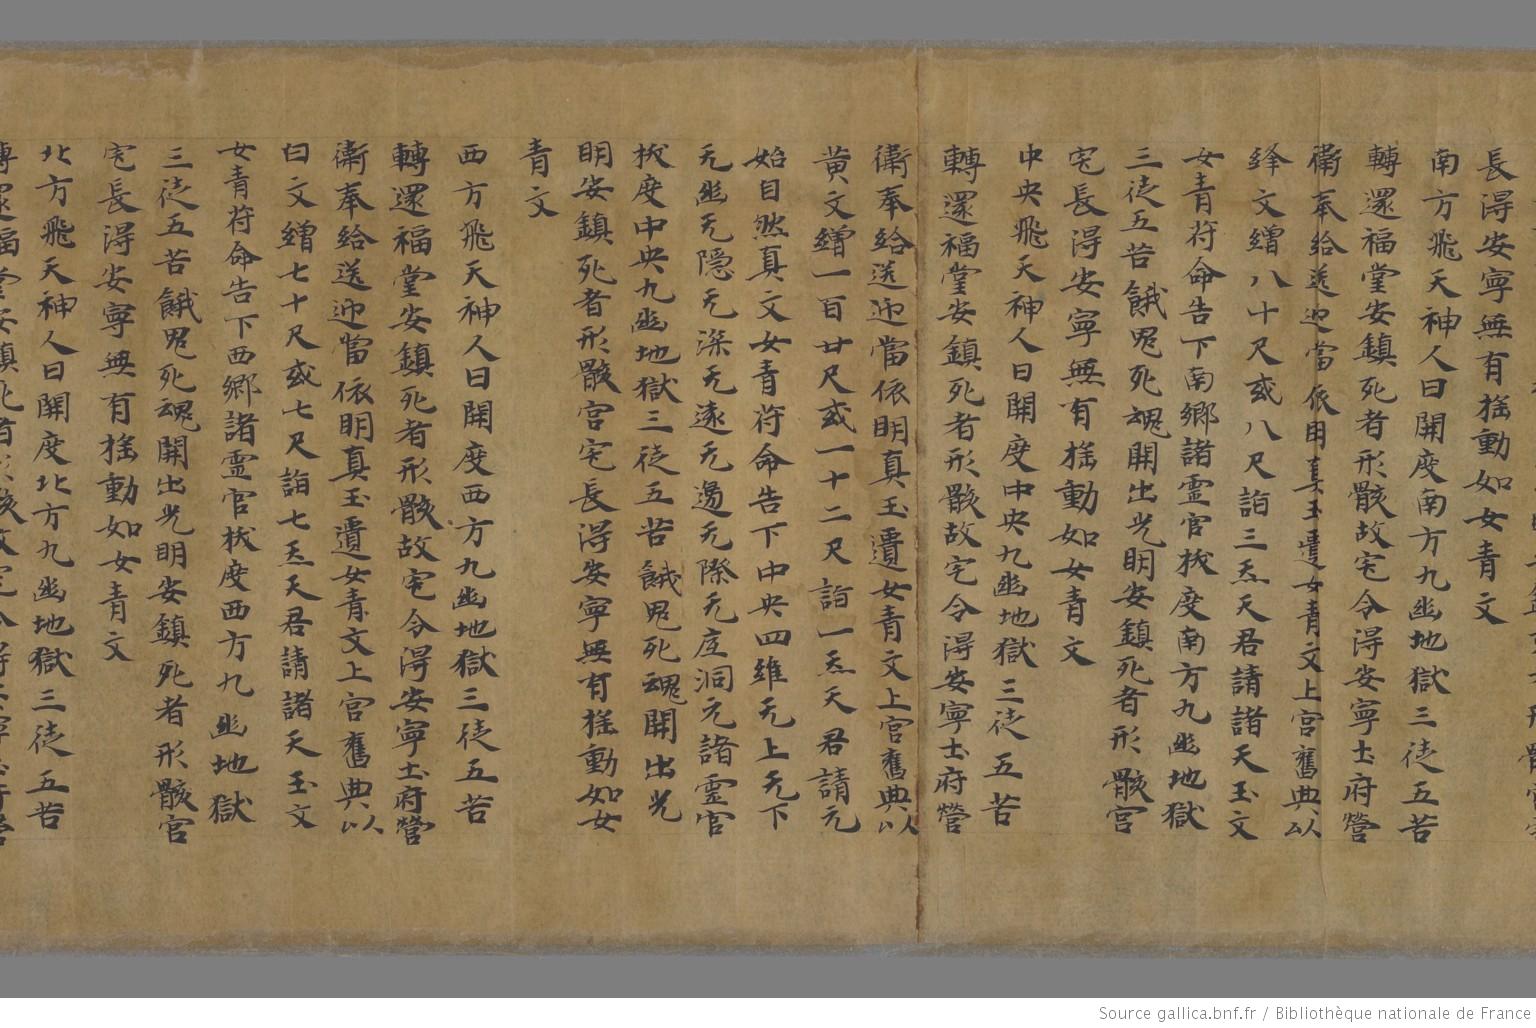 長得安寧無有揺動如女青文
南方飛天神人曰開度南方九幽地獄三徒五苦
轉還福堂安鎮死者形骸故宅令得安寧土府營
衛奉給送迎當依明真玉遺女青文上宮舊典以
絳文繒八十尺或八尺詣三炁天君請諸天玉文
女青苻命告下南鄉諸霊官拔度南方九幽地獄
三徒五苦餓鬼死魂開出光明安鎮死者形骸宮
宅長得安寧無有揺動如女青文
中央飛天神人曰開度中央九幽地獄三徒五苦
轉還福堂安鎮死者形骸故宅令得安寧土府營
衛奉給送迎當依明真玉遺女青文上宮舊典以
黄文繒一百廿尺或一十二尺詣一炁天君請元
始自然真文女青苻命告下中央四維无上无下
无幽无隠无深无遠无邊无際无底洞元諸霊官
拔度中央九幽地獄三徒五苦餓鬼死魂開出光
明安鎮死者形骸宮宅長得安寧無有揺動如女
青文
西方飛天神人曰開度西方九幽地獄三徒五苦
轉還福堂安鎮死者形骸故宅令得安寧土府營
衛奉給送迎當依明真玉遺女青文上宮舊典以
白文繒七十尺或七尺詣七炁天君請諸天玉文
女青苻命告下西鄉諸霊官拔度西方九幽地獄
三徒五苦餓鬼死魂開出光明安鎮死者形骸宮
宅長得安寧無有揺動如女青文
北方飛天神人曰開度北方九幽地獄三徒五苦
Source gallica.bnf.fr / Bibliothèque nationale de France